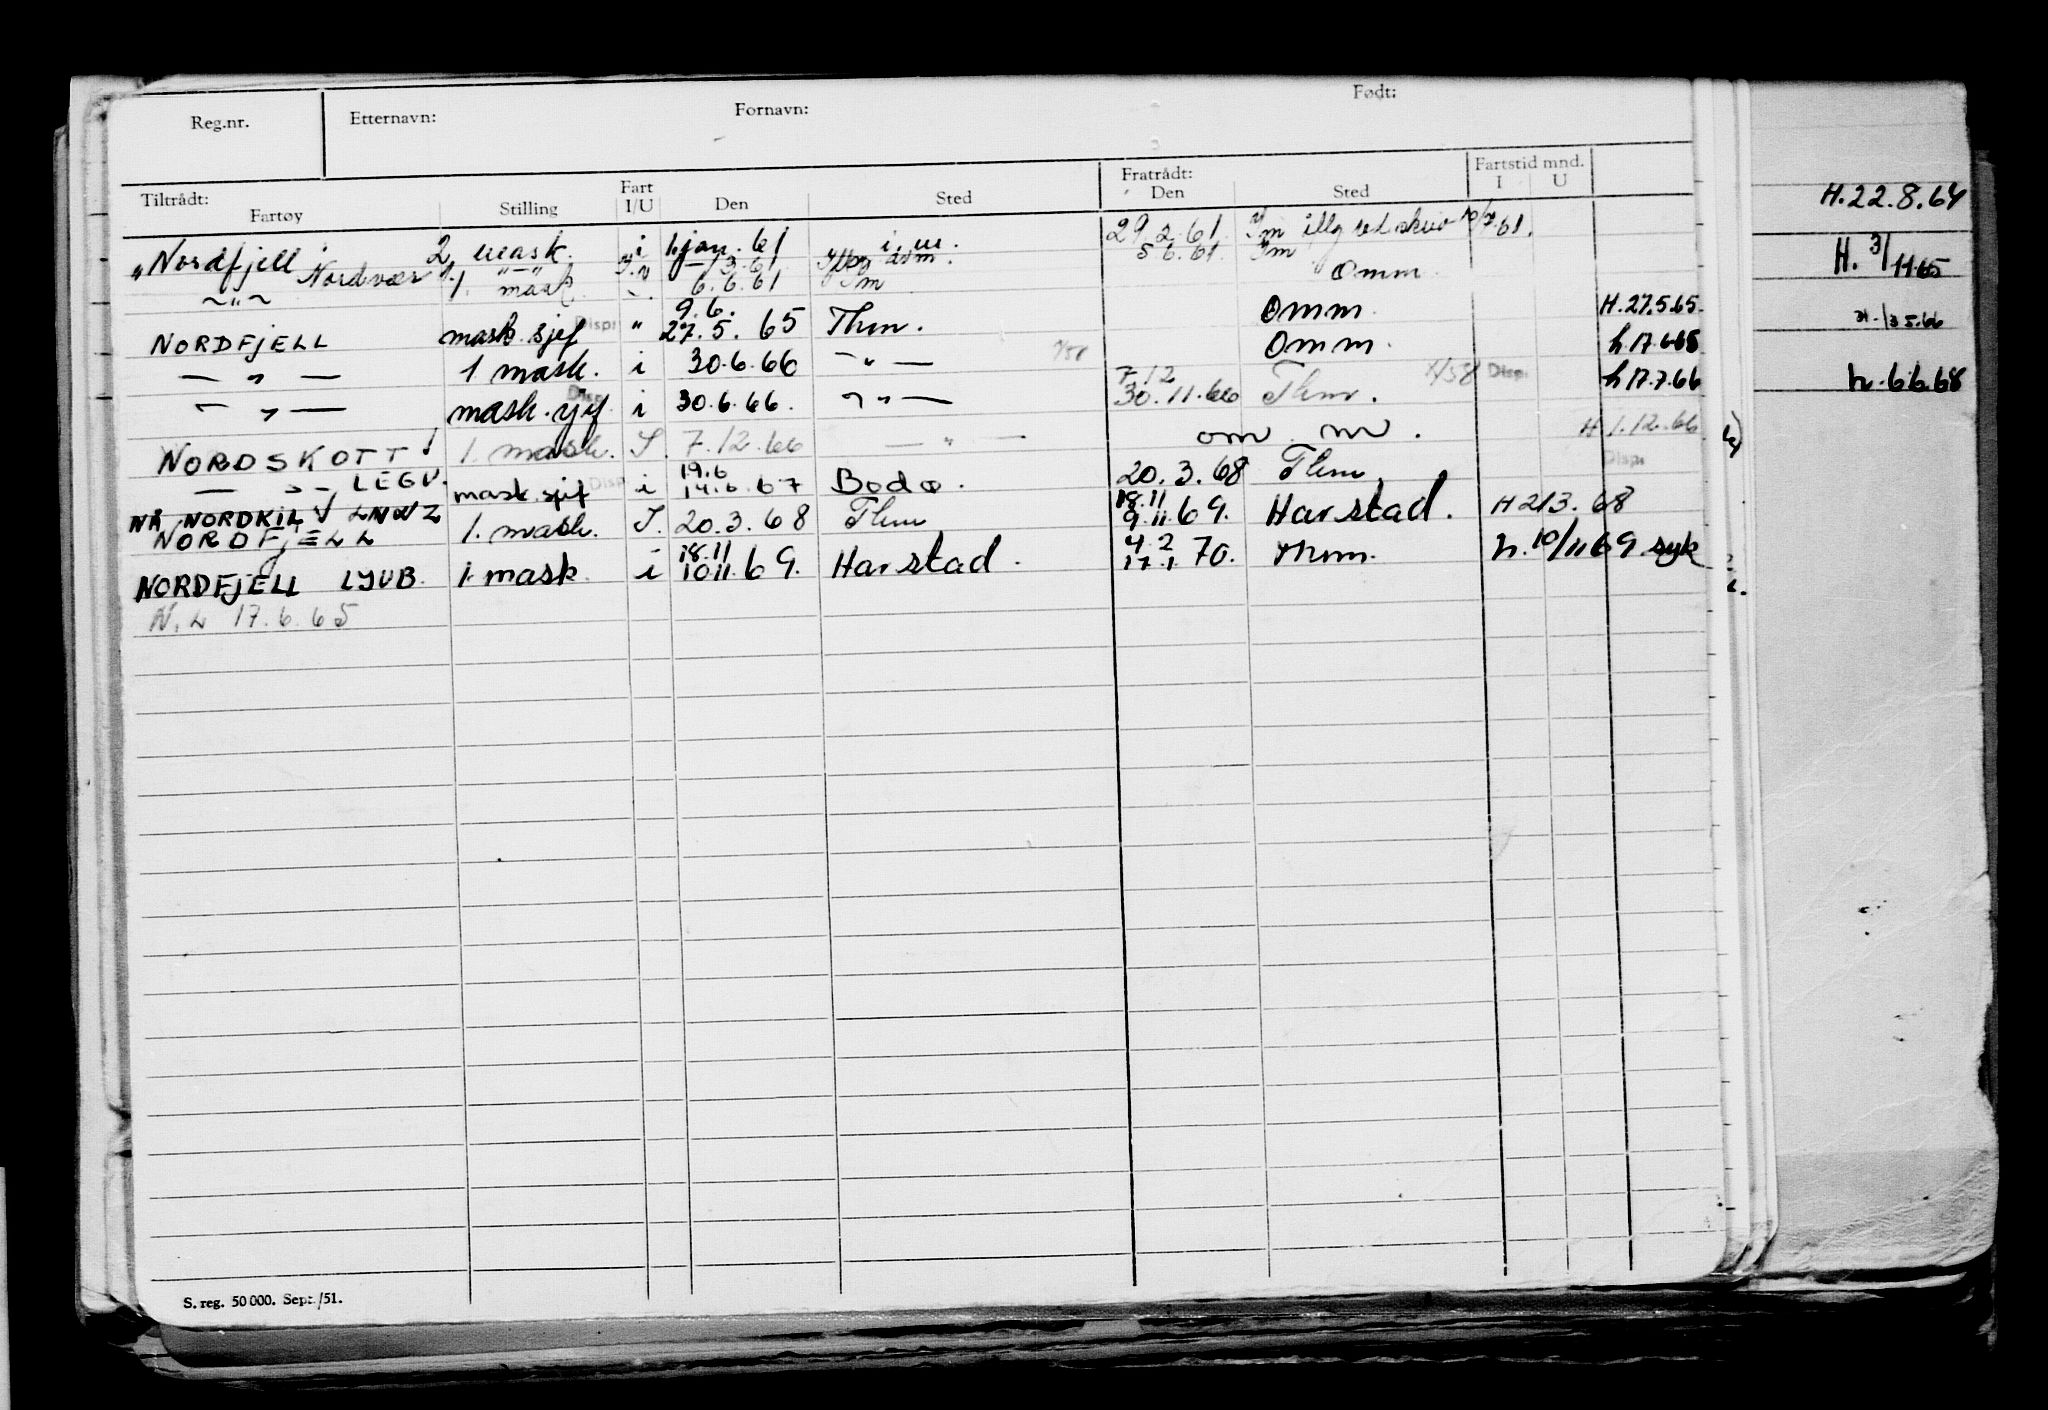 Reg.nr. Etternavn: Fornavn: Født:
Tiltrådt: Fratrådt: Fartstid mnd.
Fartøy Stilling Fart I/U Den Sted Den Sted I U
H. 22.8.64
"Nordfjell 2 mask. i 1. jan. 61 i. m. 29.2.61 10/7.61.
Nordvær 1. " 3.61 adm. 5.6.61 Tm H. 3/11.65
~"~ 1. mask. 6.6.61 Tm Omm.
NORDFJELL mask. sjef Disp. " 9.6. 27.5.65 Thm. Omm. H. 27.5.65. 31/3 5.66
— " — 1 mask. i 30.6.66 — " — Omm. h 17.6.65
— " — mask. sjef Disp. i 30.6.66. — " — 7.12 30.11.66 Thm. Disp. h 17.7.66 h. 6.6.68
NORDSKOTT 1. mask. I. 7.12.66 — " — om m. H 1.12.66
— " — LEGV. mask. sjef Disp i 19.6 14.6.67 Bodø. 20.3.68 Thm Disp.
NÅ NORDKIL LNWZ
NORDFJELL 1. mask. I. 20.3.68 Thm 18.11 9.11.69. Harstad. H 21/3.68
NORDFJELL LJUB. 1. mask. i 18.11 10.11.69. Harstad. 4.2 17.1.70. Thm. h. 10/11 69 syk
N.L 17.6.65
S. reg. 50 000. Sept./51.